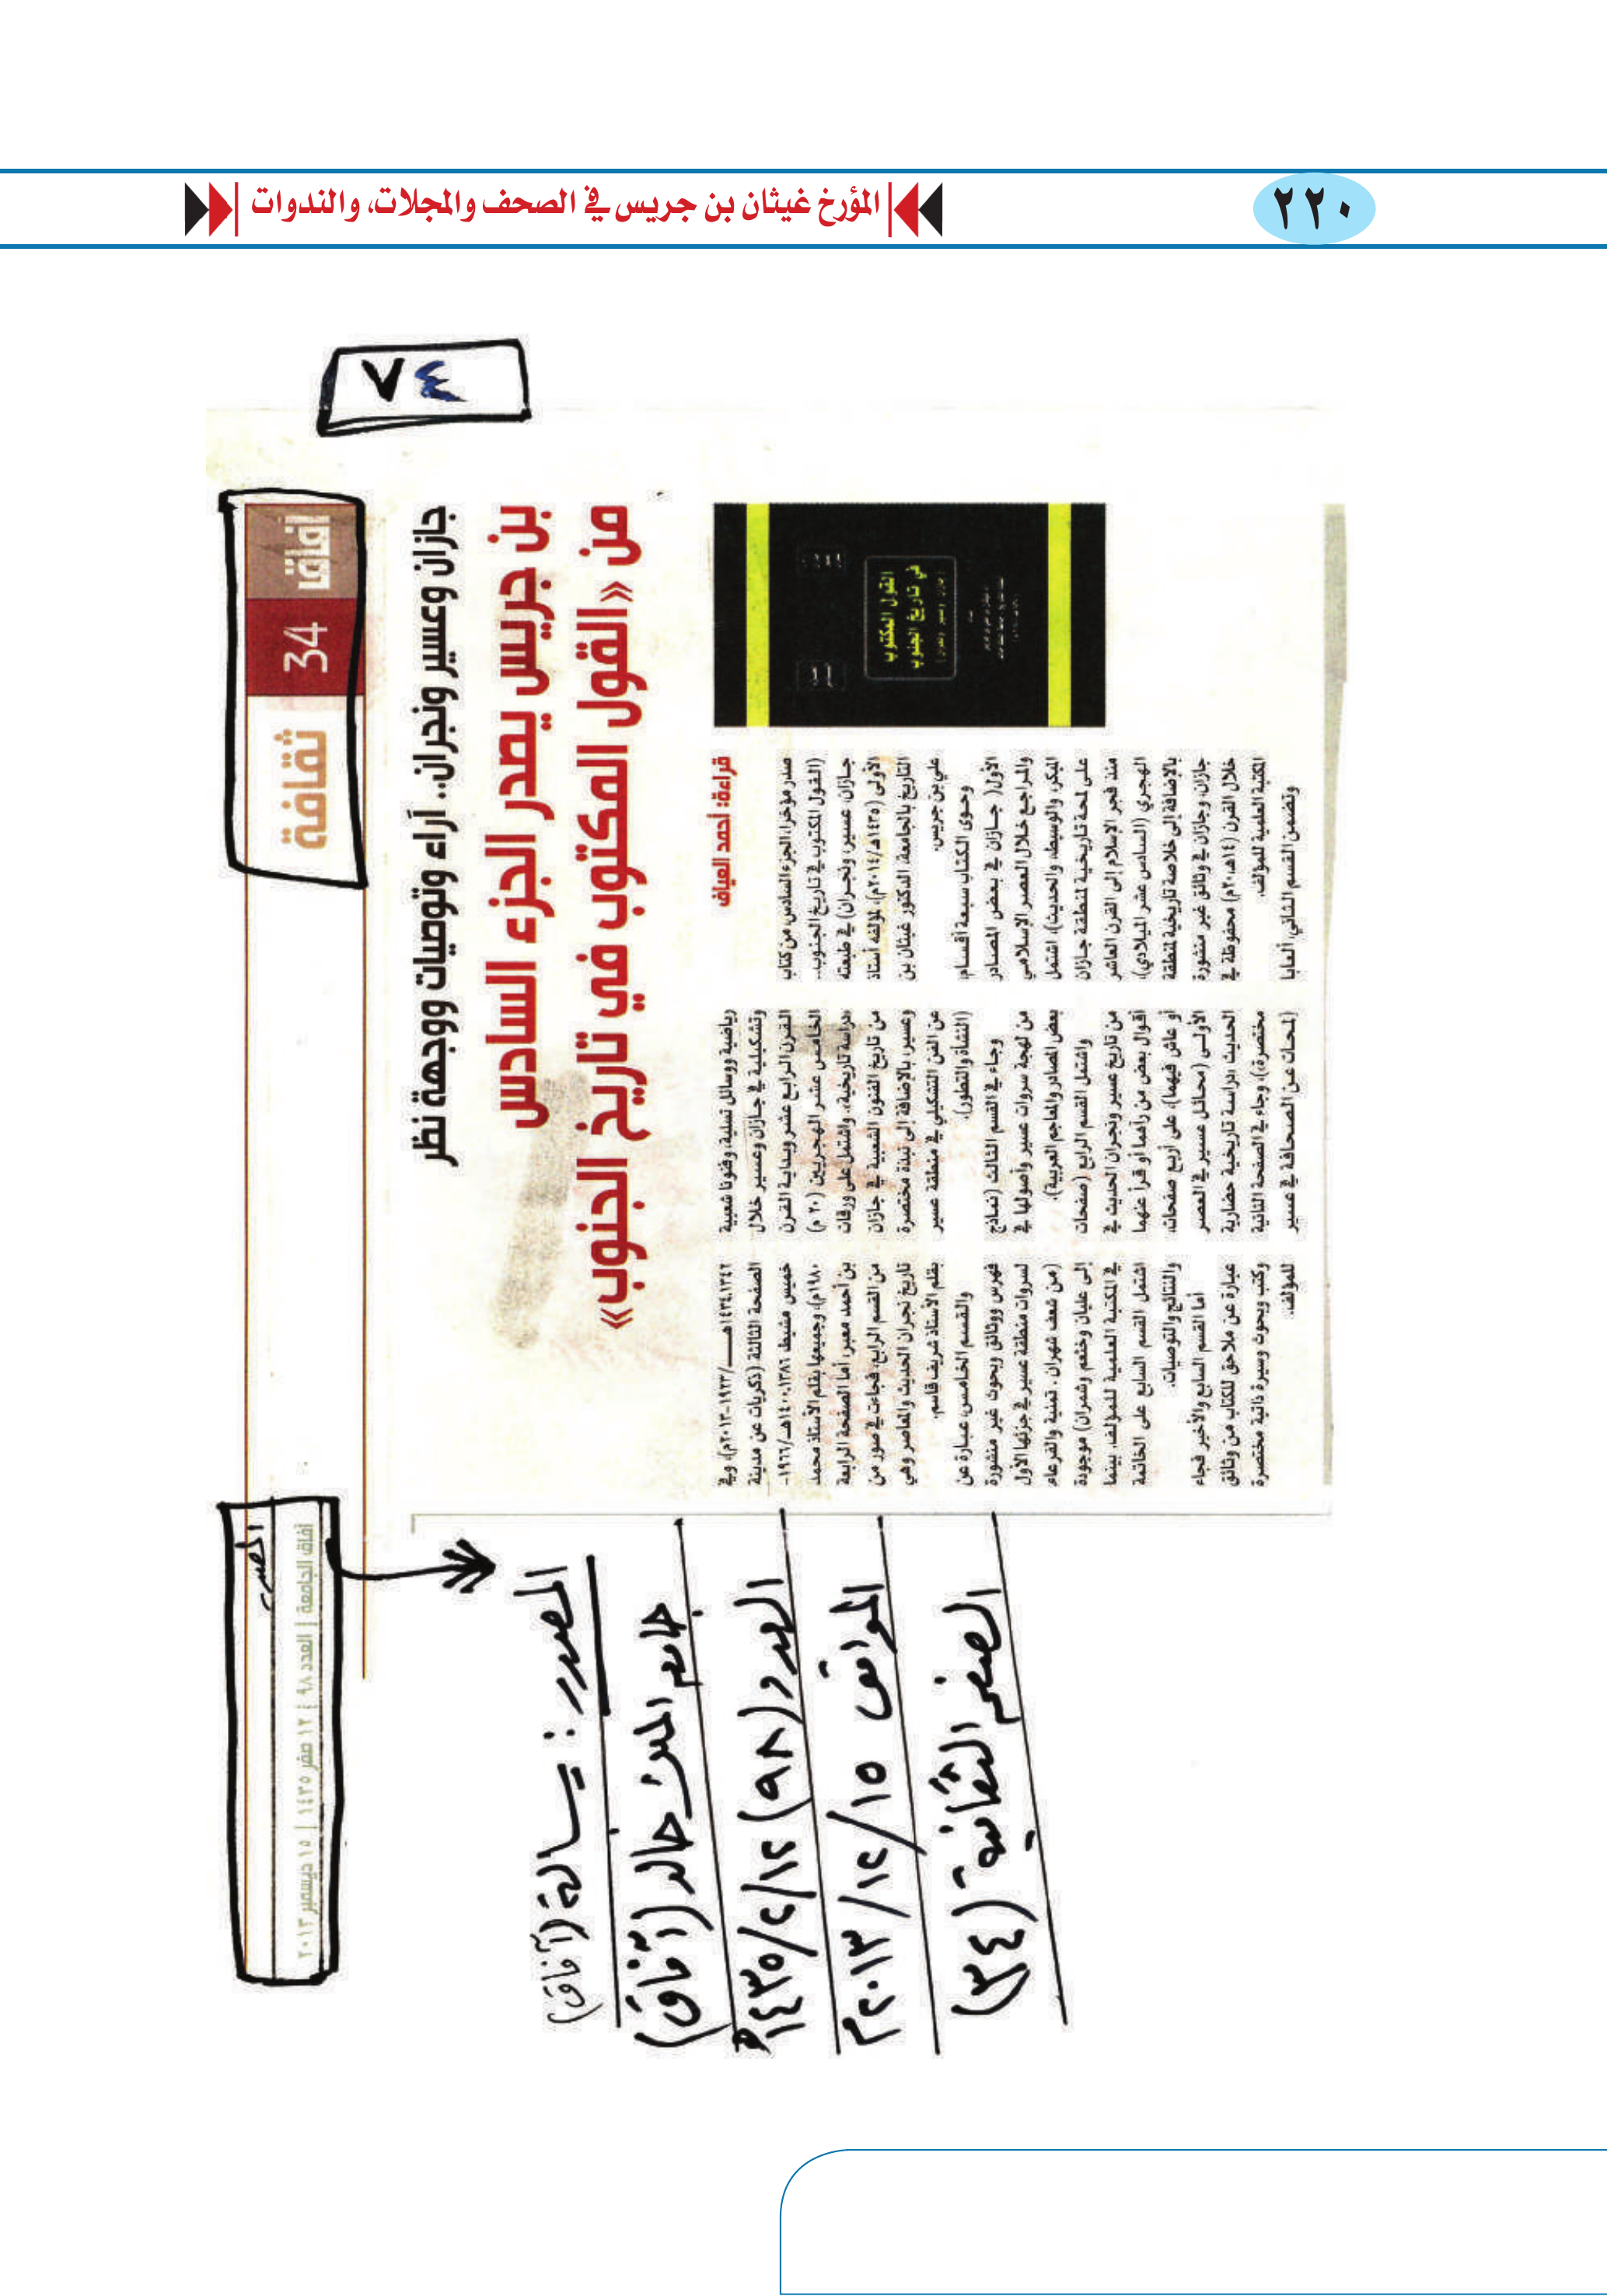 ٢٢٠
المؤرخ غيثان بن جريس في الصحف والمجلات، والندوات
٧٤
آفاق
34
ثقافة
جازان وعسير ونجران.. آراء وتوصيات ووجهة نظر
بن جريس يصدر الجزء السادس
من «القول المكتوب في تاريخ الجنوب»
القول المكتوب
في تاريخ الجنوب
قراءة: أحمد العياف
صدر مؤخرا، الجزء السادس، من كتاب
(القول المكتوب في تاريخ الجنوب..
جازان، عسير، ونجران) في طبعته
الأولى (١٤٣٥هـ/٢٠١٤م)، لمؤلفه أستاذ
التاريخ بالجامعة، الدكتور غيثان بن
علي بن جريس.
وحوى الكتاب سبعة أقسام،
الأول( جازان في بعض المصادر
والمراجع خلال العصر الإسلامي
المبكر، والوسيط، والحديث)، اشتمل
على لمحة تاريخية لمنطقة جازان
منذ فجر الإسلام إلى القرن العاشر
الهجري (السادس عشر الميلادي)،
بالإضافة إلى خلاصة تاريخية لمنطقة
جازان، وجازان في وثائق غير منشورة
خلال القرن (١٤هـ،٢٠م) محفوظة في
المكتبة العلمية للمؤلف.
وتضمن القسم الثاني، ألعابا
رياضية ووسائل تسلية، وفنونا شعبية
وتشكيلية في جازان وعسير خلال
القرن الرابع عشر وبداية القرن
الخامس عشر الهجريين (٢٠ م)
،دراسة تاريخية،، واشتمل على ورقات
من تاريخ الفنون الشعبية في جازان
وعسير، بالإضافة إلى نبذة مختصرة
عن الفن التشكيلي في منطقة عسير
(النشأة والتطور).
وجاء في القسم الثالث (نماذج
من لهجة سروات عسير وأصولها في
بعض المصادر والمعاجم العربية).
واشتمل القسم الرابع (صفحات
من تاريخ عسير ونجران الحديث في
أقوال بعض من رآهما أو قرأ عنهما
أو عاش فيهما)، على أربع صفحات،
الأولى (محائل عسير في العصر
الحديث ،دراسة تاريخية حضارية
مختصرة،)، وجاء في الصفحة الثانية
(لمحات عن الصحافة في عسير
١٣٤٢-١٤٣٤هـ/١٩٢٣-٢٠١٣م)، وفي
الصفحة الثالثة (ذكريات عن مدينة
خميس مشيط ١٣٨٦-١٤٠٠هـ/١٩٦٦-
١٩٨٠م)، وجميعها بقلم الأستاذ محمد
بن أحمد معبر، أما الصفحة الرابعة
من القسم الرابع، فجاءت في صور من
تاريخ نجران الحديث والمعاصر وهي
بقلم الأستاذ شريف قاسم.
والقسم الخامس، عبارة عن
فهرس ووثائق وبحوث غير منشورة
لسروات منطقة عسير في جزئها الأول
(من شعف شهران . تمنية والقرعاء
إلى عليان وخثعم وشمران) موجودة
في المكتبة العلمية للمؤلف. بينما
اشتمل القسم السابع على الخاتمة
والنتائج والتوصيات.
أما القسم السابع والأخير فجاء
عبارة عن ملاحق للكتاب من وثائق
وكتب وبحوث وسيرة ذاتية مختصرة
للمؤلف.
المصدر
آفاق الجامعة | العدد ٩٨ | ١٢ صفر ١٤٣٥ | ١٥ ديسمبر ٢٠١٣
المصدر : رسالة (آفاق)
جامعة الملك خالد (آفاق)
العدد (٩٨) ١٢/٢/١٤٣٥هـ
الموافق ١٥/١٢/٢٠١٣م
الصفحة الثقافية (٣٤)